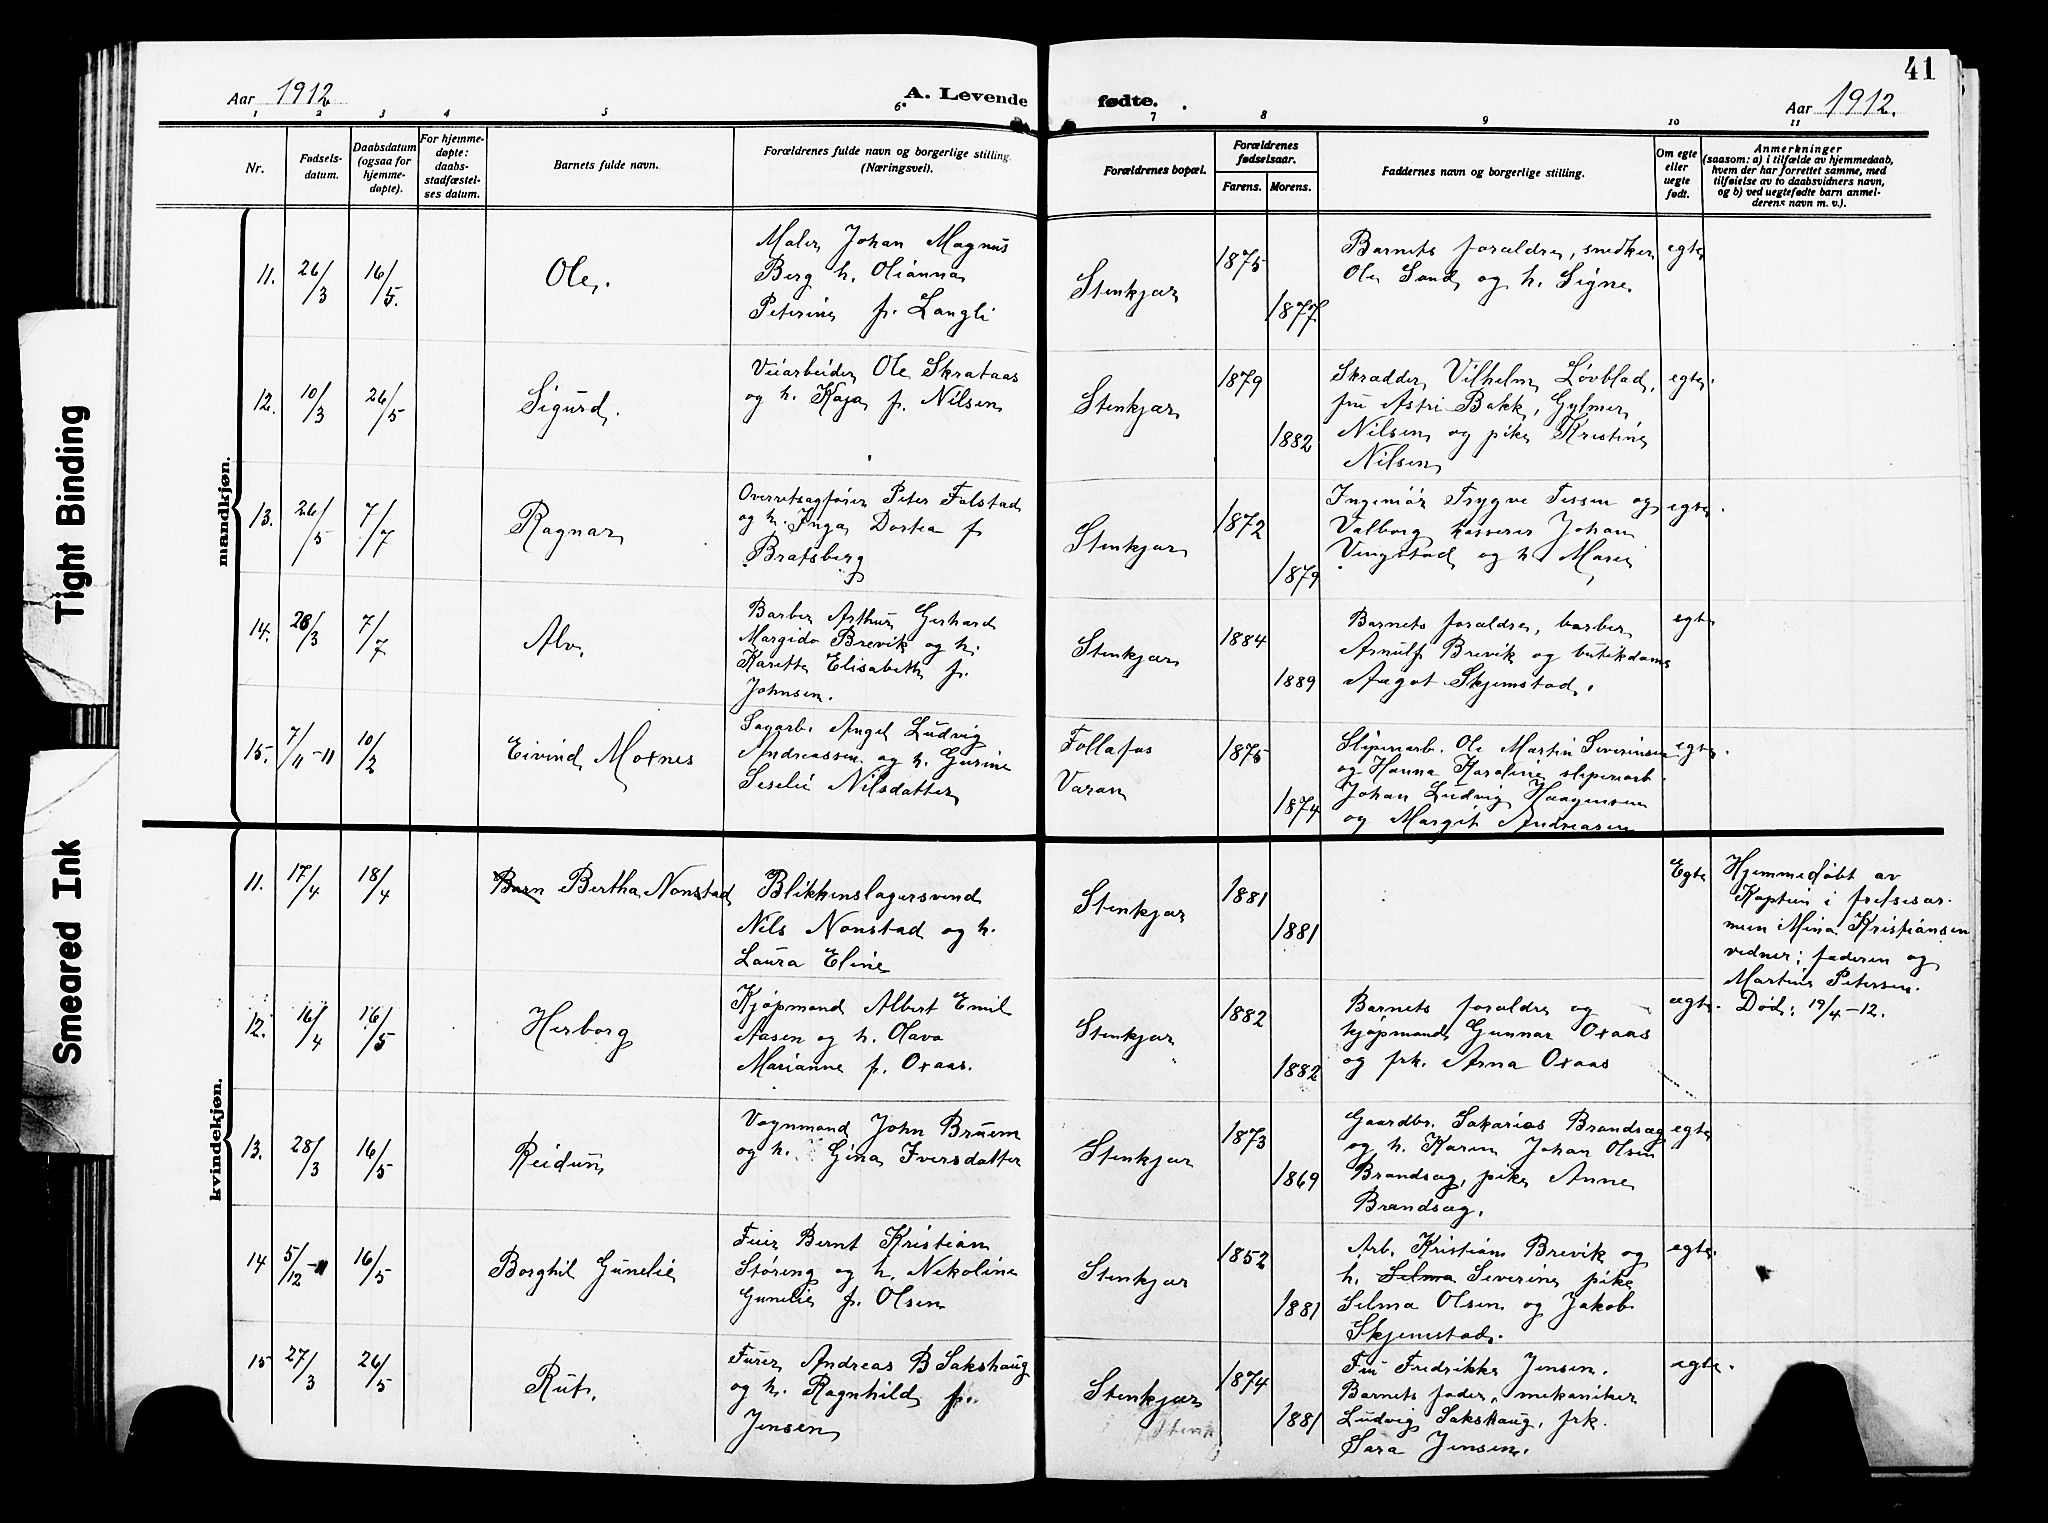 Tight Binding
Smeared Ink
41
Aar 1912
A. Levende
fødte.
Aar 1912.
1 2 3 4 5 6. 7 8 9 10 11
Nr.
Fødsels-
datum.
Daabsdatum
(ogsaa for
hjemme-
døpte).
For hjemme-
døpte:
daabs-
stadfæstel-
ses datum.
Barnets fulde navn.
Forældrenes fulde navn og borgerlige stilling.
(Næringsvei).
Forældrenes bopæl.
Forældrenes
fødselsaar.
Farens. Morens.
Faddernes navn og borgerlige stilling.
Om egte
eller
uegte
født.
Anmerkninger
(saasom: a) i tilfælde av hjemmedaab,
hvem der har forrettet samme, med
tilføielse av to daabsvidners navn,
og b) ved uegtefødte barn anmel-
derens navn m. v.).
mandkjøn.
11. 26/3 16/5. Ole.
Maler Johan Magnus
Berg h. Olianna
Peterine f. Langli
Stenkjær
1875
1877
Barnets forældre, snedker
Ole Sand og h. Signe
egte
12. 10/3 26/5 Sigurd.
Veiarbeider Ole Skrataas
og h. Kaja f. Nilsen
Stenkjær
1879
1882
Skrædder Vilhelm Løvblad,
fru Astri Bakk, Gylmer
Nilsen og pike Kristine
Nilsen
egte.
13. 26/5 7/7 Ragnar
Overretsagfører Peter Falstad
og h. Inga Dortea f
Bratsberg
Stenkjær
1872
1879
Ingeniør Trygve Tessem og
Valborg kasserer Johan
Vingstad og h. Marie
egte.
14. 28/3 7/7 Alv.
Barber Arthur Gerhard
Margido Brevik og h.
Karette Elisabeth f.
Johnsen.
Stenkjær
1884
1889
Barnets forældre, barber
Arnulf Brevik og butikdame
Aagot Skjemstad.
egte
15. 7/11-11 10/2 Eivind Moxnes
Sagarb. Angel Ludvig
Andreassen og h. Gurine
Seselie Nilsdatter
Follafos
Varan
1875
1874
Sliperiarb. Ole Martin Severinsen
og Hanna Karoline sliperiarb.
Johan Ludvig Haagensen
og Margit Andreasen
egte.
kvindekjøn.
11. 17/4 18/4 Barn Bertha Nonstad
Blikkenslagersvend
Nils Nonstad og h.
Laura Eline
Stenkjær
1881
1881
Egte
Hjemmedøbt av
Kaptein i frelsesar-
meen Mina Kristiansen
vidner: faderen og
Martin Petersen.
Død: 19/4-12.
12. 16/4 16/5 Herborg
Kjøpmand Albert Emil
Aasen og h. Olava
Marianne f. Oxaas.
Stenkjær
1882
1882
Barnets forældre og
kjøpmand Gunnar Oxaas
og frk. Arna Oxaas
ægte.
13. 28/3 16/5 Reidun
Vognmand John Bruem
og h. Gina Iversdatter
Stenkjær
1873
1869
Gaardbr. Sakarias Brandsæg
og h. Karen Johan Olsen
Brandsæg, pike Anne
Brandsæg.
egte
14 5/12-11 16/5 Borghil Gunelie
Fuer Bernt Kristian
Støreng og h. Nikoline
Gunelie f. Olsen
Stenkjær
1852
1881
Arb. Kristian Brevik og
h. Selma Severine pike
Selma Olsen og Jakob
Skjemstad.
egte.
15 27/3 26/5 Rut.
Furer Andreas B Sakshaug
og h. Ragnhild f.
Jensen
Stenkjær
1874
1881
Fru Fredrikke Jensen.
Barnets fader, mekaniker
Ludvig Sakshaug, frk.
Sara Jensen.
egte.